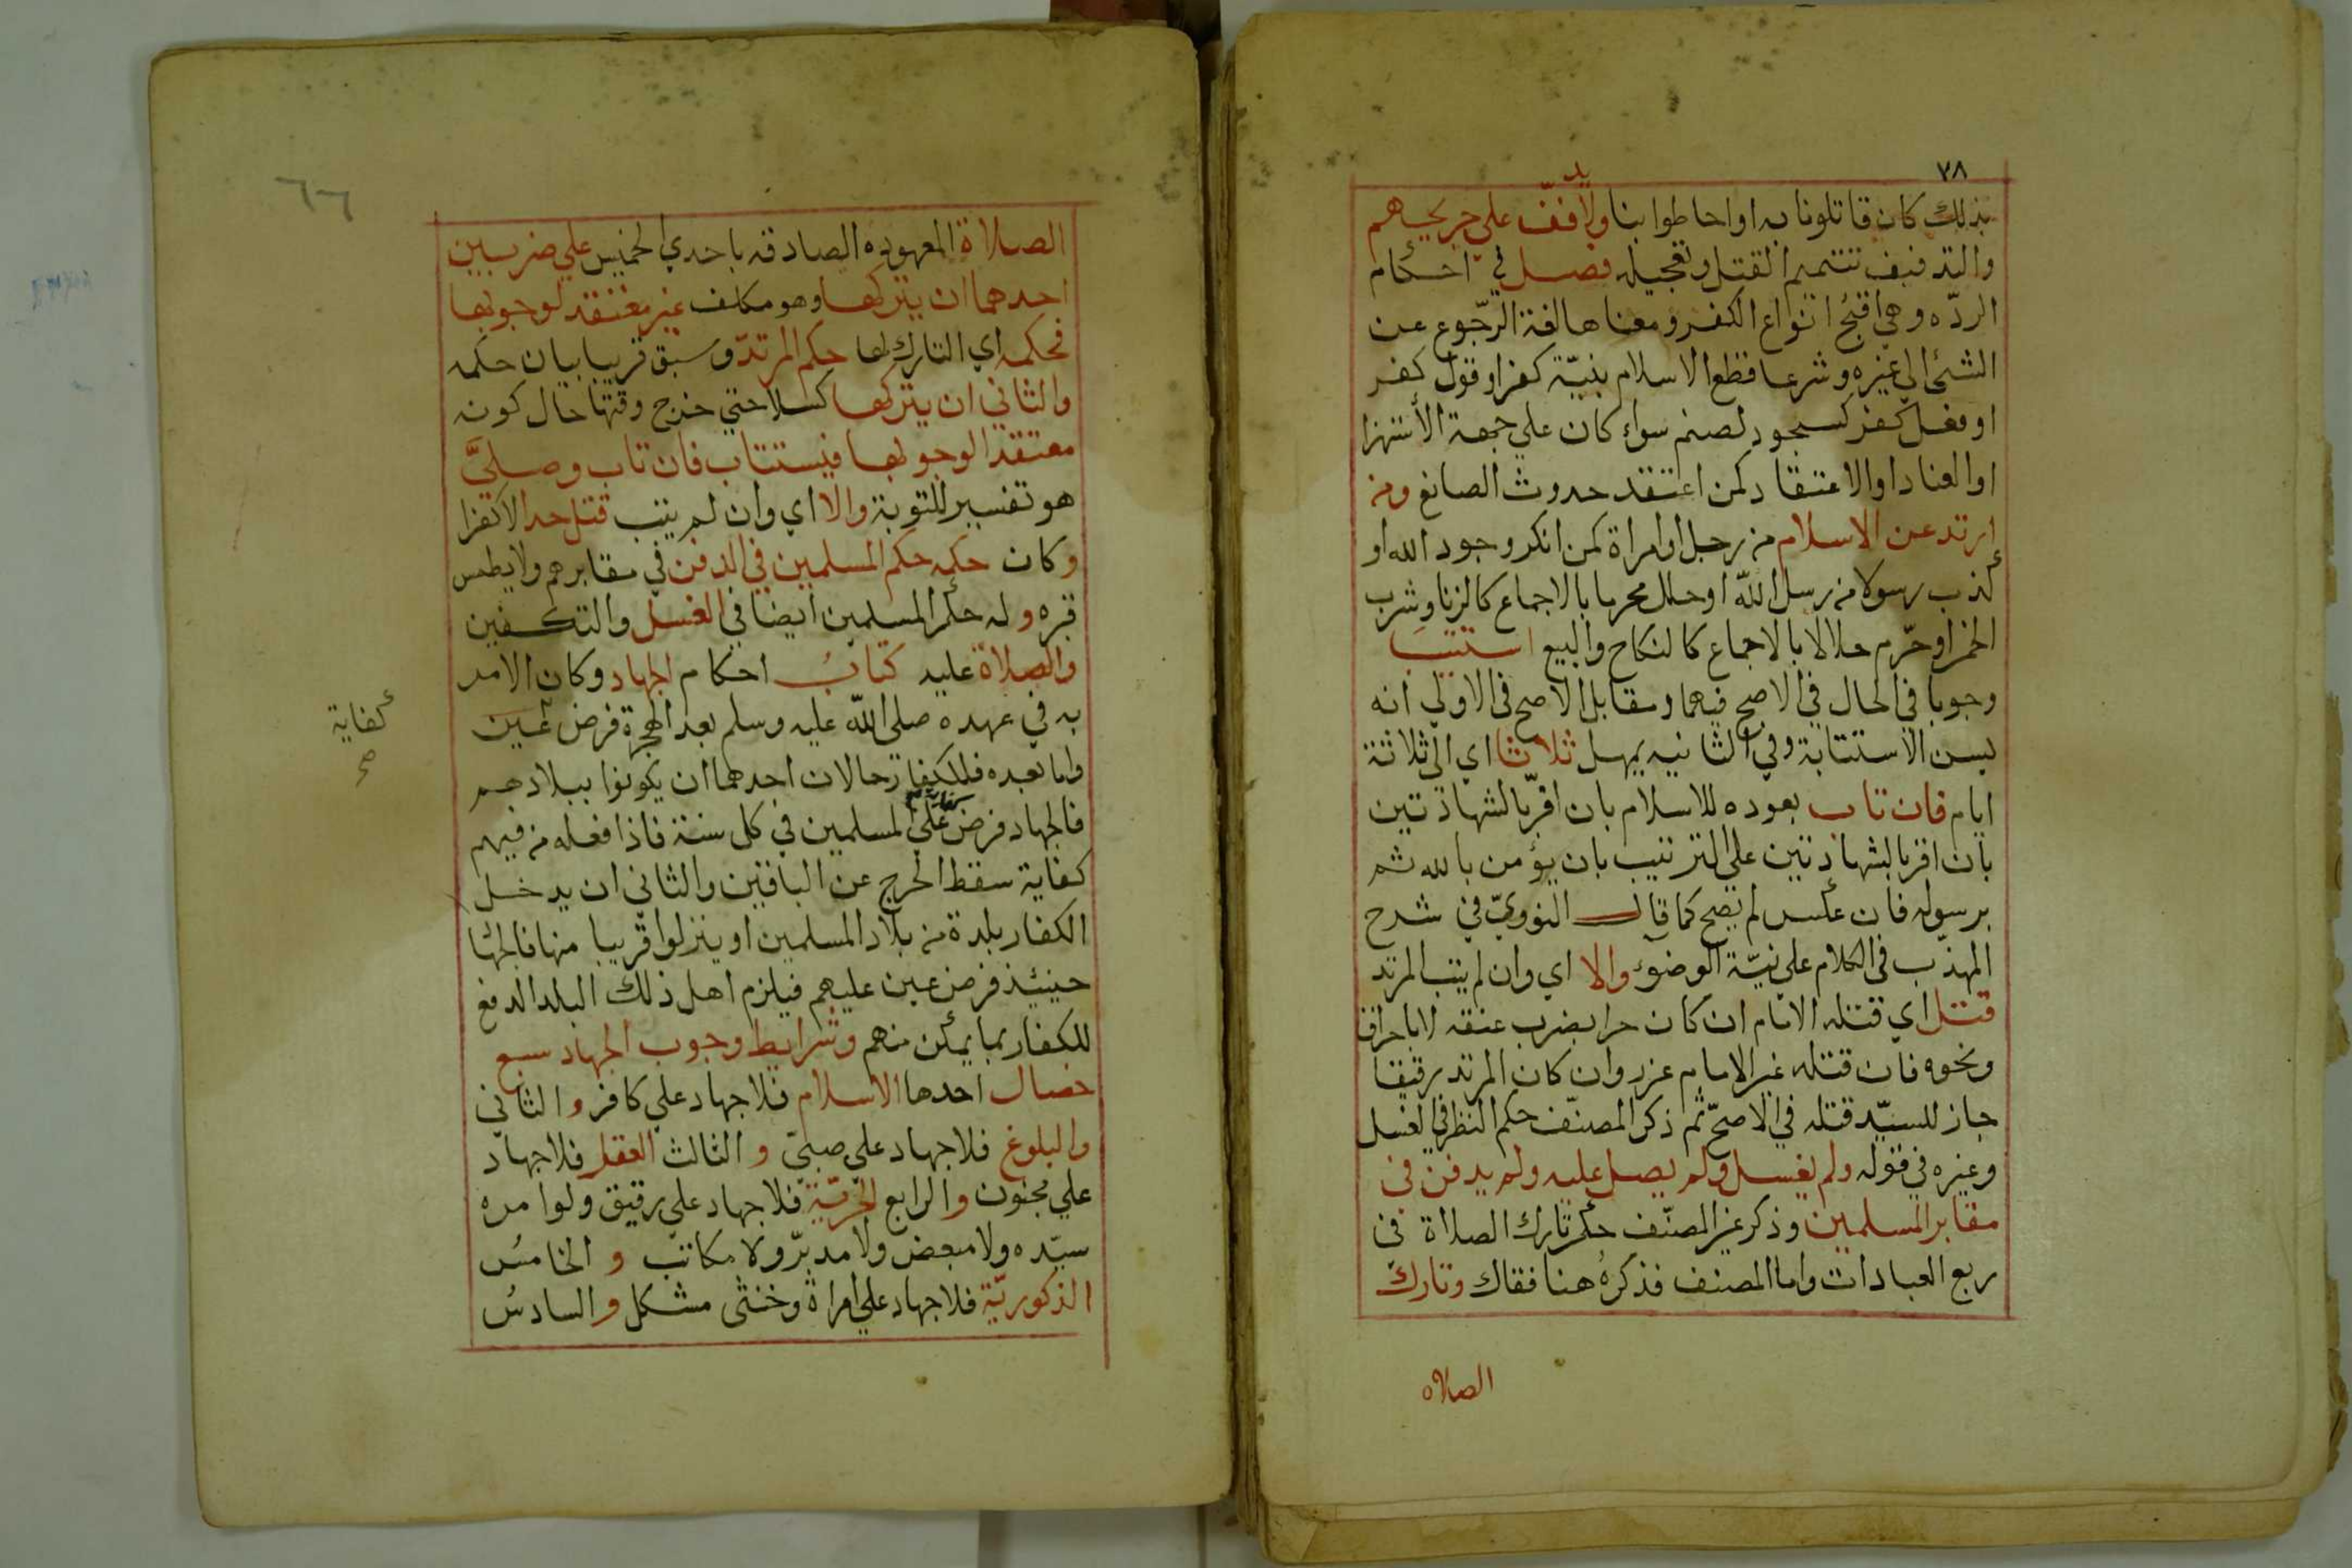 ٧٨
بذلك كان قاتلونا به او احاطوا بنا ولا يدفف علي جريحهم
والتدفيف تتميم القتل وتعجيله فصل في احكام
الردّه وهي اقبح انواع الكفر ومعناها لغة الرّجوع عن
الشئ الي غيره وشرعا قطع الاسلام بنيّة كفر او قول كفر
او فعل كفر كسجود لصنم سواء كان علي جهة الأستهزا
او العناد او الاعتقاد كمن اعتقد حدوث الصانع ومن
ارتد عن الاسلام من رجل او امراة كمن انكر وجود الله او
كذب رسولا من رسل اللّه او حلل محرما بالاجماع كالزنا وشرب
الخمر او حرّم حلالا بالاجماع كالنكاح والبيع استتيب
وجوبا في الحال في الاصح فيهما ومقابل الاصح في الاولي انه
يسن الاستتابة وفي الثانيه يمهل ثلاثا اي الي ثلاثة
ايام فان تاب بعوده للاسلام بان اقرّ بالشهادتين
بان اقر بالشهادتين علي الترتيب بان يؤمن بالله ثم
برسوله فان عكس لم يصح كما قال النوويّ في شرح
المهذّب في الكلام علي نيّة الوضوء والا اي وان لم يتب المرتد
قتل اي قتله الامام ان كان حرا بضرب عنقه لا باحراق
ونحوه فان قتله غير الامام عزر وان كان المرتد رقيقا
جاز للسيّد قتله في الاصحّ ثم ذكر المصنّف حكم النظر في الغسل
وغيره في قوله ولم يغسل ولم يصل عليه ولم يدفن في
مقابر المسلمين وذكر غير المصنّف حكم تارك الصلاة في
ربع العبادات واما المصنف فذكرهُ هنا فقال وتارك
الصلاه
٦٦
الصلاة المعهوده الصادقه باحدي الخمس علي ضربين
احدهما ان يتركها وهو مكلف غير معتقد لوجوبها
فحكمه اي التارك لها حكم المرتدّ وسبق قريبا بيان حكمه
والثاني ان يتركها كسلا حتي خرج وقتها حال كونه
معتقد الوجوبها فيستتاب فان تاب وصليَّ
هو تفسير للتوبة والا اي وان لم يتب قتل حدا لا كفرا
وكان حكمه حكم المسلمين في الدفن في مقابرهم ولا يطمس
قبره وله حكم المسلمين ايضا في الغسل والتكفين
والصلاة عليه كتابُ احكام الجهاد وكان الامر
به في عهده صلي اللّه عليه وسلم بعد الهجرة فرض عين
كفاية
صح
واما بعده فللكفار حالان احدهما ان يكونوا ببلادهم
فالجهاد فرض كفاية علي المسلمين في كل سنة فاذا فعله من فيهم
كفاية سقط الحرج عن الباقين والثاني ان يدخل
الكفار بلدة من بلاد المسلمين او ينزلوا قريبا منها فالجها
حينئيذ فرض عين عليهم فيلزم اهل ذلك البلد الدفع
للكفار بما يمكن منهم وشرايط وجوب الجهاد سبع
خصال احدها الاسلام فلا جهاد علي كافر والثاني
والبلوغ فلا جهاد علي صبيّ و الثالث العقل فلا جهاد
علي مجنون والرابع الحريّة فلا جهاد علي رقيق ولو امره
سيّده ولا مبعض ولا مدبّر ولا مكاتب و الخامس
الذكوريّة فلا جهاد علي امراة وخنثي مشكل و السادسُ